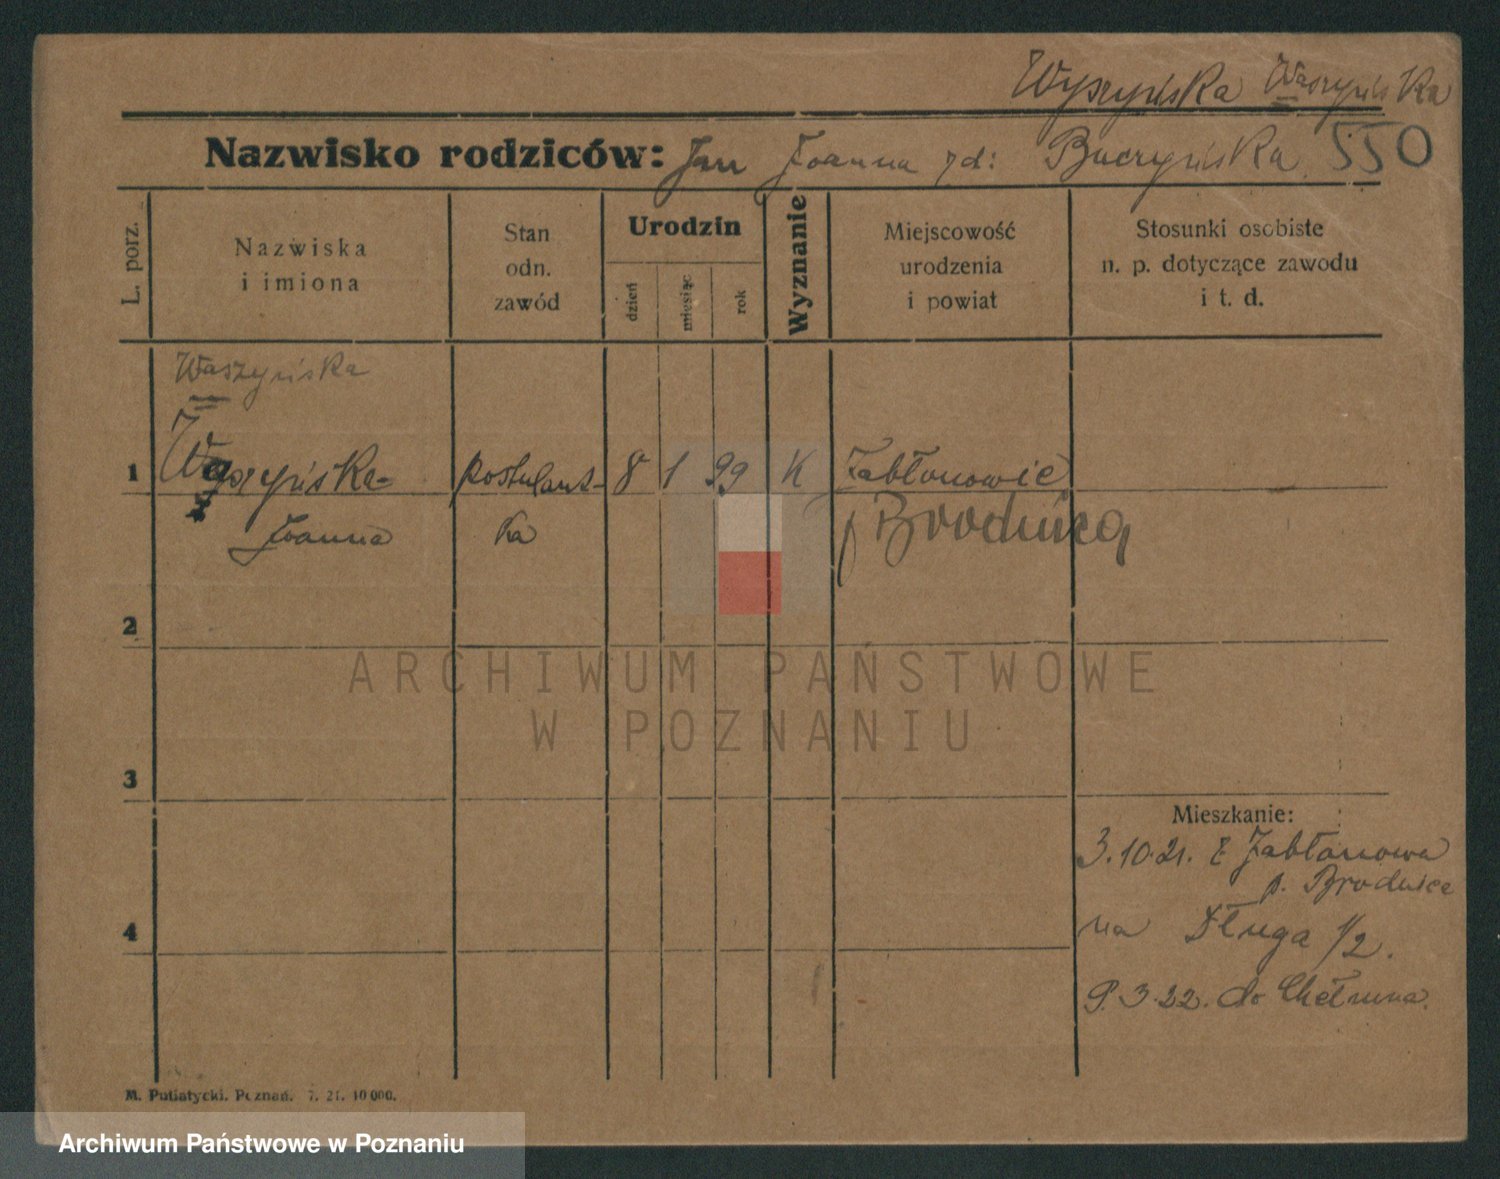 Wyszyńska Waszyńska
Nazwisko rodziców: Jan Joanna zd: Buczyńska 550
L. porz.
Nazwiska
i imiona
Stan
odn.
zawód
Urodzin
dzień
miesiąc
rok
Wyznanie
Miejscowość
urodzenia
i powiat
Stosunki osobiste
n. p. dotyczące zawodu
i t. d.
Waszyńska
1 Waszyńska postulant- 8 1 99 K Jabłonowie
Joanna ka p Brodnica
2
ARCHIWUM PAŃSTWOWE
W POZNANIU
3
Mieszkanie:
3.10.21. z Jabłonowa
p. Brodnica
4
na Długa 1/2.
9.3.22. do Chełmna.
M. Putiatycki, Poznań. 7. 21. 10 000.
Archiwum Państwowe w Poznaniu